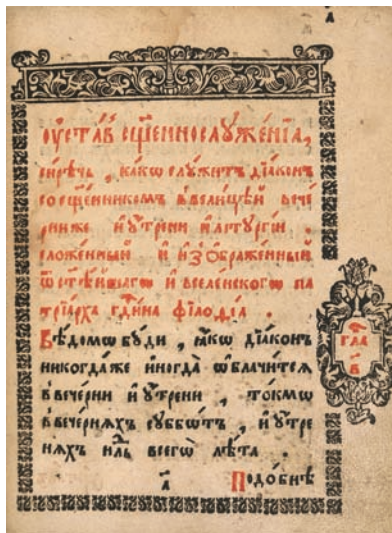 Оуста́въ сщ҃еннослꙋже́нїѧ,
си́речь, ка́кѡ слꙋ́житъ дїа́конъ
со сщ҃е́нникомъ в вели́цѣй вече́
рни же и҆ ᲂу҆́трени и҆ літꙋргїи.
сложе́нный и҆ и҆зѡбраже́нный
па
трїа́рха фїлоѳїа.
Вѣ́домѡ бꙋ́ди, ꙗ҆́кѡ дїа́конъ
никогда́же и҆ногда̀ ѡ҆блачи́тсѧ
в вече́рни и҆ ᲂу҆́трени, то́кмѡ
в вече́рнѧхъ сꙋббѡ́тъ, и҆ ᲂу҆́тре
нѧхъ нл҃ь всегѡ̀ лѣ́та.
Подо́бнѣ
гла
в҃
а҃